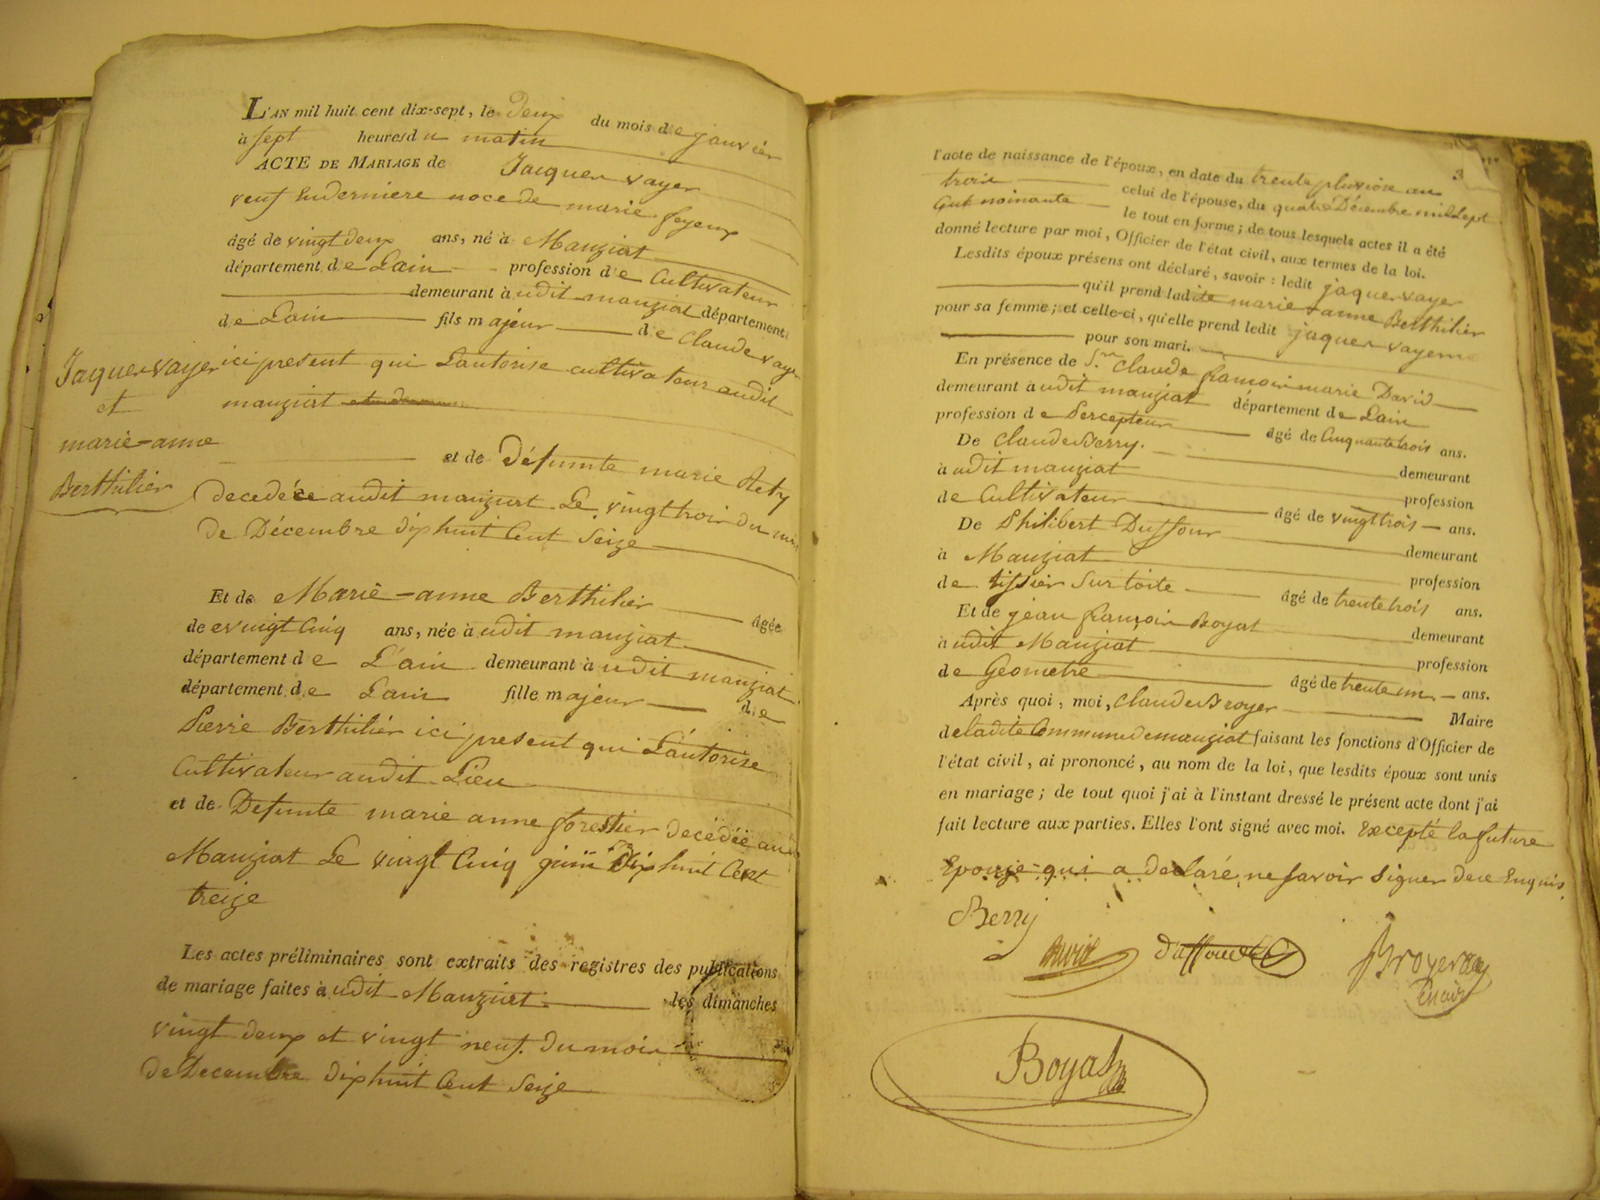 L'AN mil huit cent dix-sept, le deux du mois de janvier
à sept heures du matin
ACTE DE MARIAGE de Jacquer vayer
veuf en derniere noce de marie feyeux
âgé de vingt deux ans, né à Manziat
département de Lain profession de Cultivateur
demeurant à udit manziat département
de Lain fils majeur de Claude vayer
ici present qui Lautorise cultivateur audit
manziat
Jaquer vayer
et
marie-anne
Berthilier
et de Défunte marie
decedée audit manziat Le vingt trois du mois
de Décembre dix huit Cent Seize
Et de Marie-anne Berthilier âgée
de vingt Cinq ans, née à udit manziat
département de L'ain demeurant à udit manziat
département de Lain fille majeur de
Pierre Berthilier ici present qui L'autorise
Cultivateur audit Lieu
et de Defunte marie anne forestier decédée audit
Manziat Le vingt Cinq juin Dix huit Cent
treize
Les actes préliminaires sont extraits des registres des publications
de mariage faites à udit Manziat les dimanches
vingt deux et vingt neuf du mois
de Decembre dix huit Cent Seize
3
l'acte de naissance de l'époux, en date du trente pluviose an
trois celui de l'épouse, du quatre Décembre mil Sept
Cent noinante le tout en forme ; de tous lesquels actes il a été
donné lecture par moi, Officier de l'état civil, aux termes de la loi.
Lesdits époux présens ont déclaré, savoir : ledit jaquer vayer
qu'il prend ladite marie-anne Berthilier
pour sa femme ; et celle-ci, qu'elle prend ledit jaquer vayer
pour son mari.
En présence de Sr. Claude francois marie David
demeurant à udit manziat département de Lain
profession de Percepteur âgé de Cinquante trois ans.
De Claude Berry. demeurant
à udit manziat profession
de Cultivateur âgé de vingt trois ans.
De Philibert Duffour demeurant
à Manziat profession
de tissier Sur toile âgé de trente trois ans.
Et de jean francois Boyat demeurant
à udit Manziat profession
de Geometre âgé de trente un ans.
Après quoi, moi, Claude Broyer Maire
de ladite Commune de manziat faisant les fonctions d'Officier de
l'état civil, ai prononcé, au nom de la loi, que lesdits époux sont unis
en mariage ; de tout quoi j'ai à l'instant dressé le présent acte dont j'ai
fait lecture aux parties. Elles l'ont signé avec moi. Excepté la future
Epouze qui a declaré ne savoir Signer de ce Enquis
Berry
David
Broyer
maire
Boyat